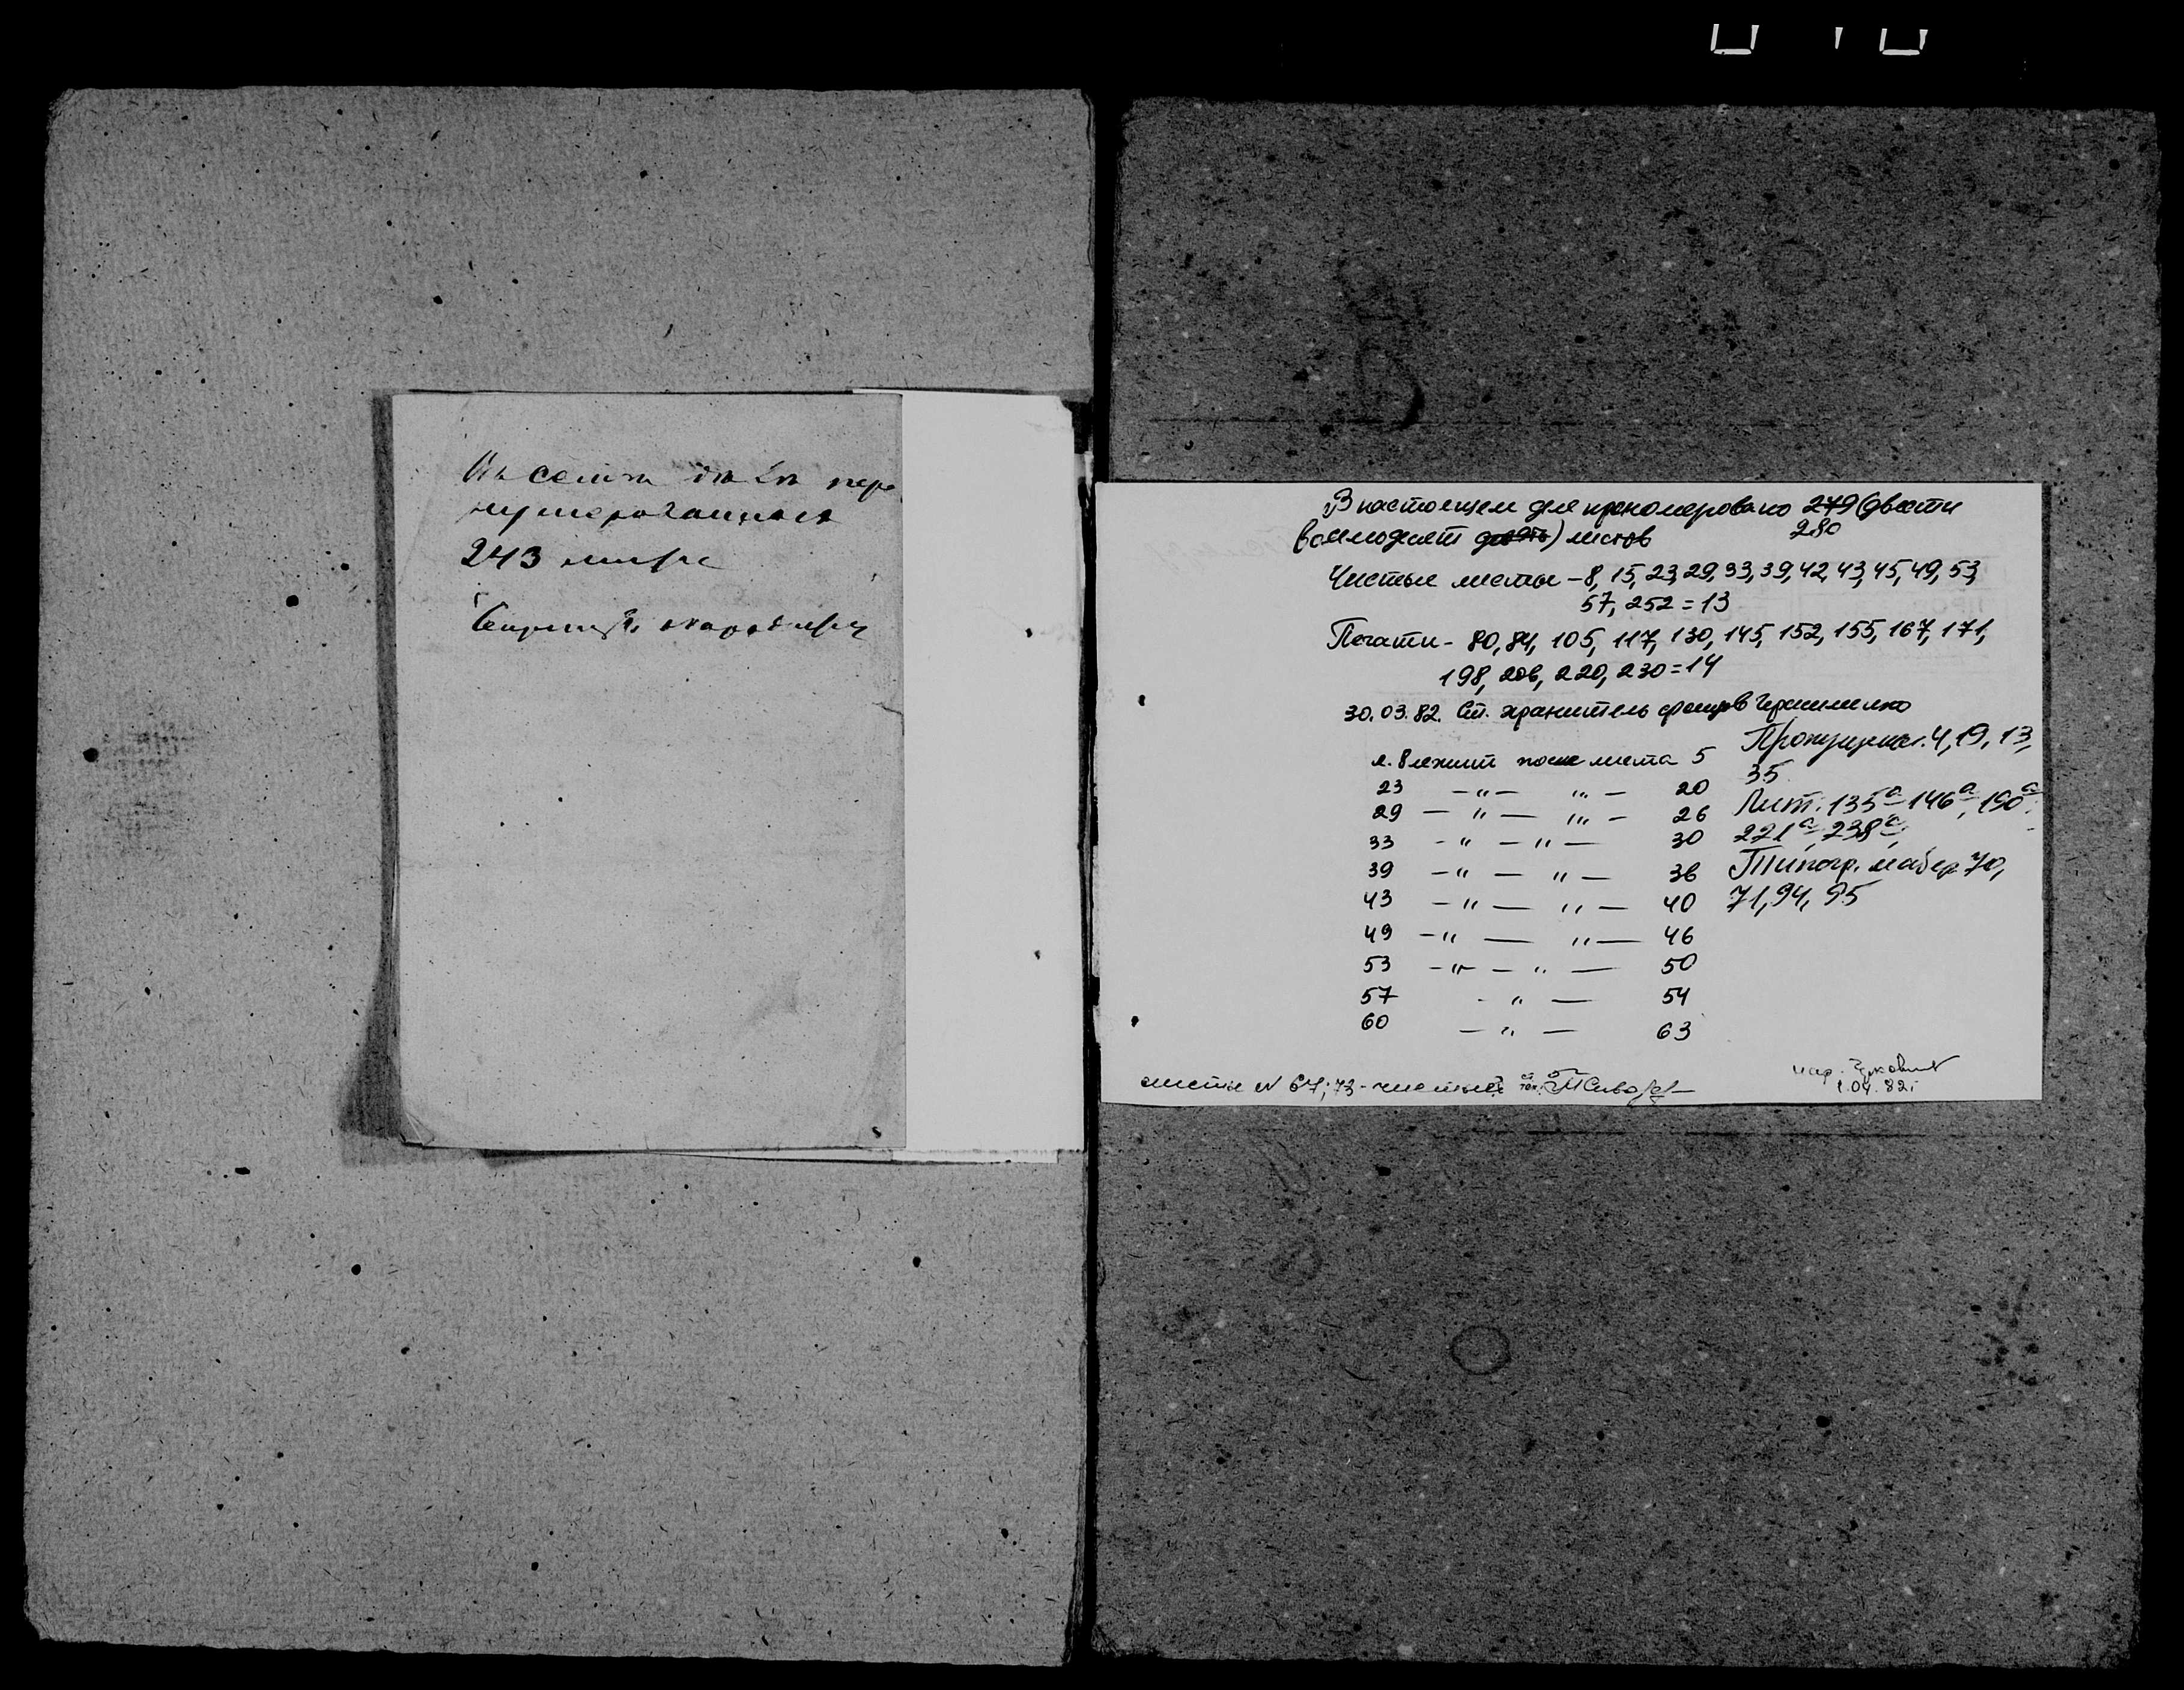 Въ семъ дѣлѣ пере
нумерованныхъ
243 листа
В настоящем деле прономеровано 279 (двести
280
восемьдесят девять) листов
Чистые листы – 8, 15, 23, 29, 33, 39, 42, 43, 45, 49, 53,
57, 252 = 13
Печати – 80, 84, 105, 117, 130, 145, 152, 155, 167, 171,
198, 206, 220, 230 = 14
30.03.82. Ст. хранитель фондов
л. 8 лежит после листа 5
23 – " – " – 20
29 – " – " – 26
33 – " – " – 30
39 – " – " – 36
43 – " – " – 40
49 – " – " – 46
53 – " – " – 50
57 – " – 54
60 – " – 63
Пропущены л. 4, 19, 13,
35
Лит. 135а, 146а, 190а,
221а, 238а,
Типогр. 70,
71, 94, 95
листы N 67; 73 - чистые
1.04.82г